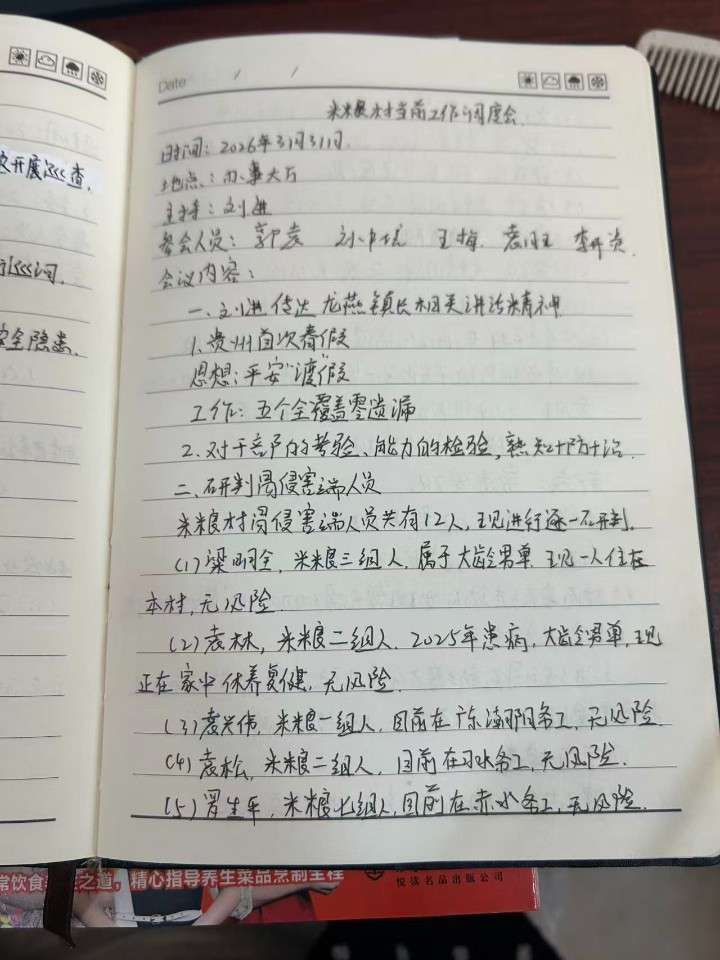 次开展巡查,
巡河,
安全隐患.
Date / /
米粮村当前工作调度会
时间: 2026年3月31日.
地点: 办事大厅
主持: 刘进
参会人员: 郭袁 刘中优 王梅. 袁国玉 李开炎.
会议内容:
一、刘进传达龙燕镇长相关讲话精神
1. 贵州首次春假
思想: 平安"渡"假
工作: 五个全覆盖零遗漏
2. 对于音户的考验、能力的检验, 熟知十防十治.
二、研判易侵害端人员
米粮村易侵害端人员共有12人, 现进行逐一研判.
(1) 梁明全, 米粮三组人, 属于大龄男单. 现一人住在
本村, 无风险
(2) 袁林, 米粮二组人. 2025年患病, 大龄男单, 现
正在家中休养复健, 无风险.
(3) 袁兴伟, 米粮一组人, 目前在广东务工, 无风险.
(4) 袁松, 米粮二组人, 目前在习水务工, 无风险.
(5) 罗生平, 米粮七组人, 目前在赤水务工, 无风险.
常饮食之道, 精心指导养生菜品烹制全程
悦读名品出版公司